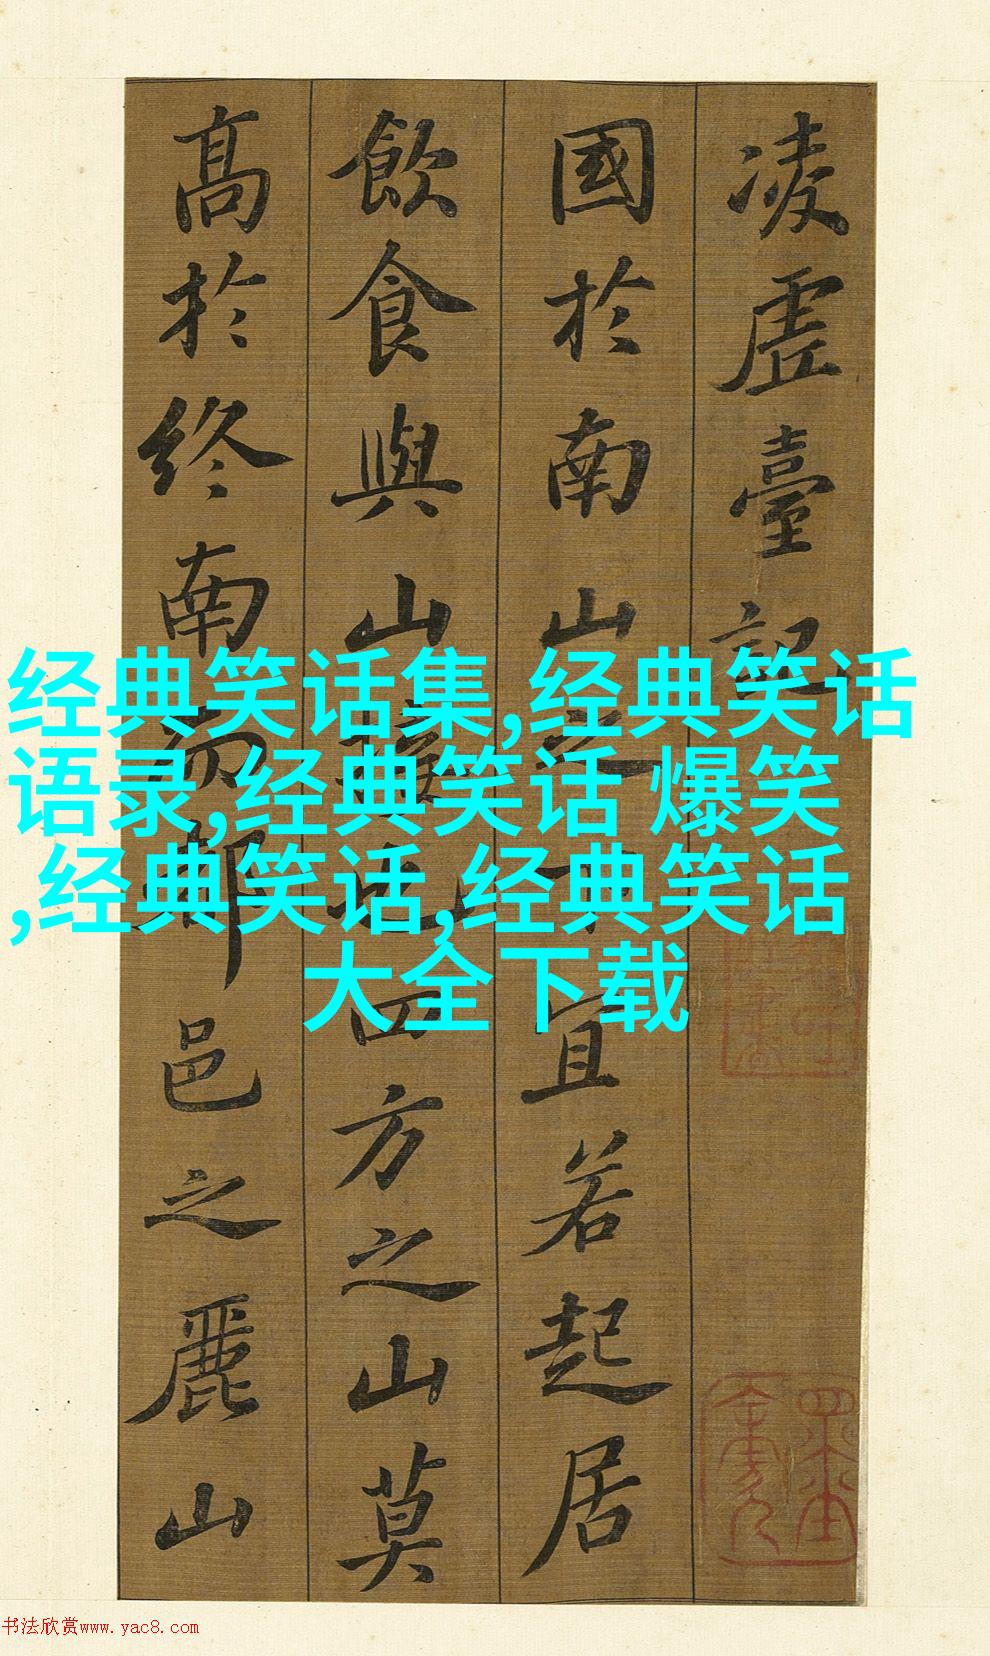 凌虛臺記
國於南山之下宜若起居
飲食與山接也四方之山莫
高於終南而都邑之麗山
经典笑话集,经典笑话
语录,经典笑话 爆笑
,经典笑话,经典笑话
大全下载
书法欣赏www.yac8.com